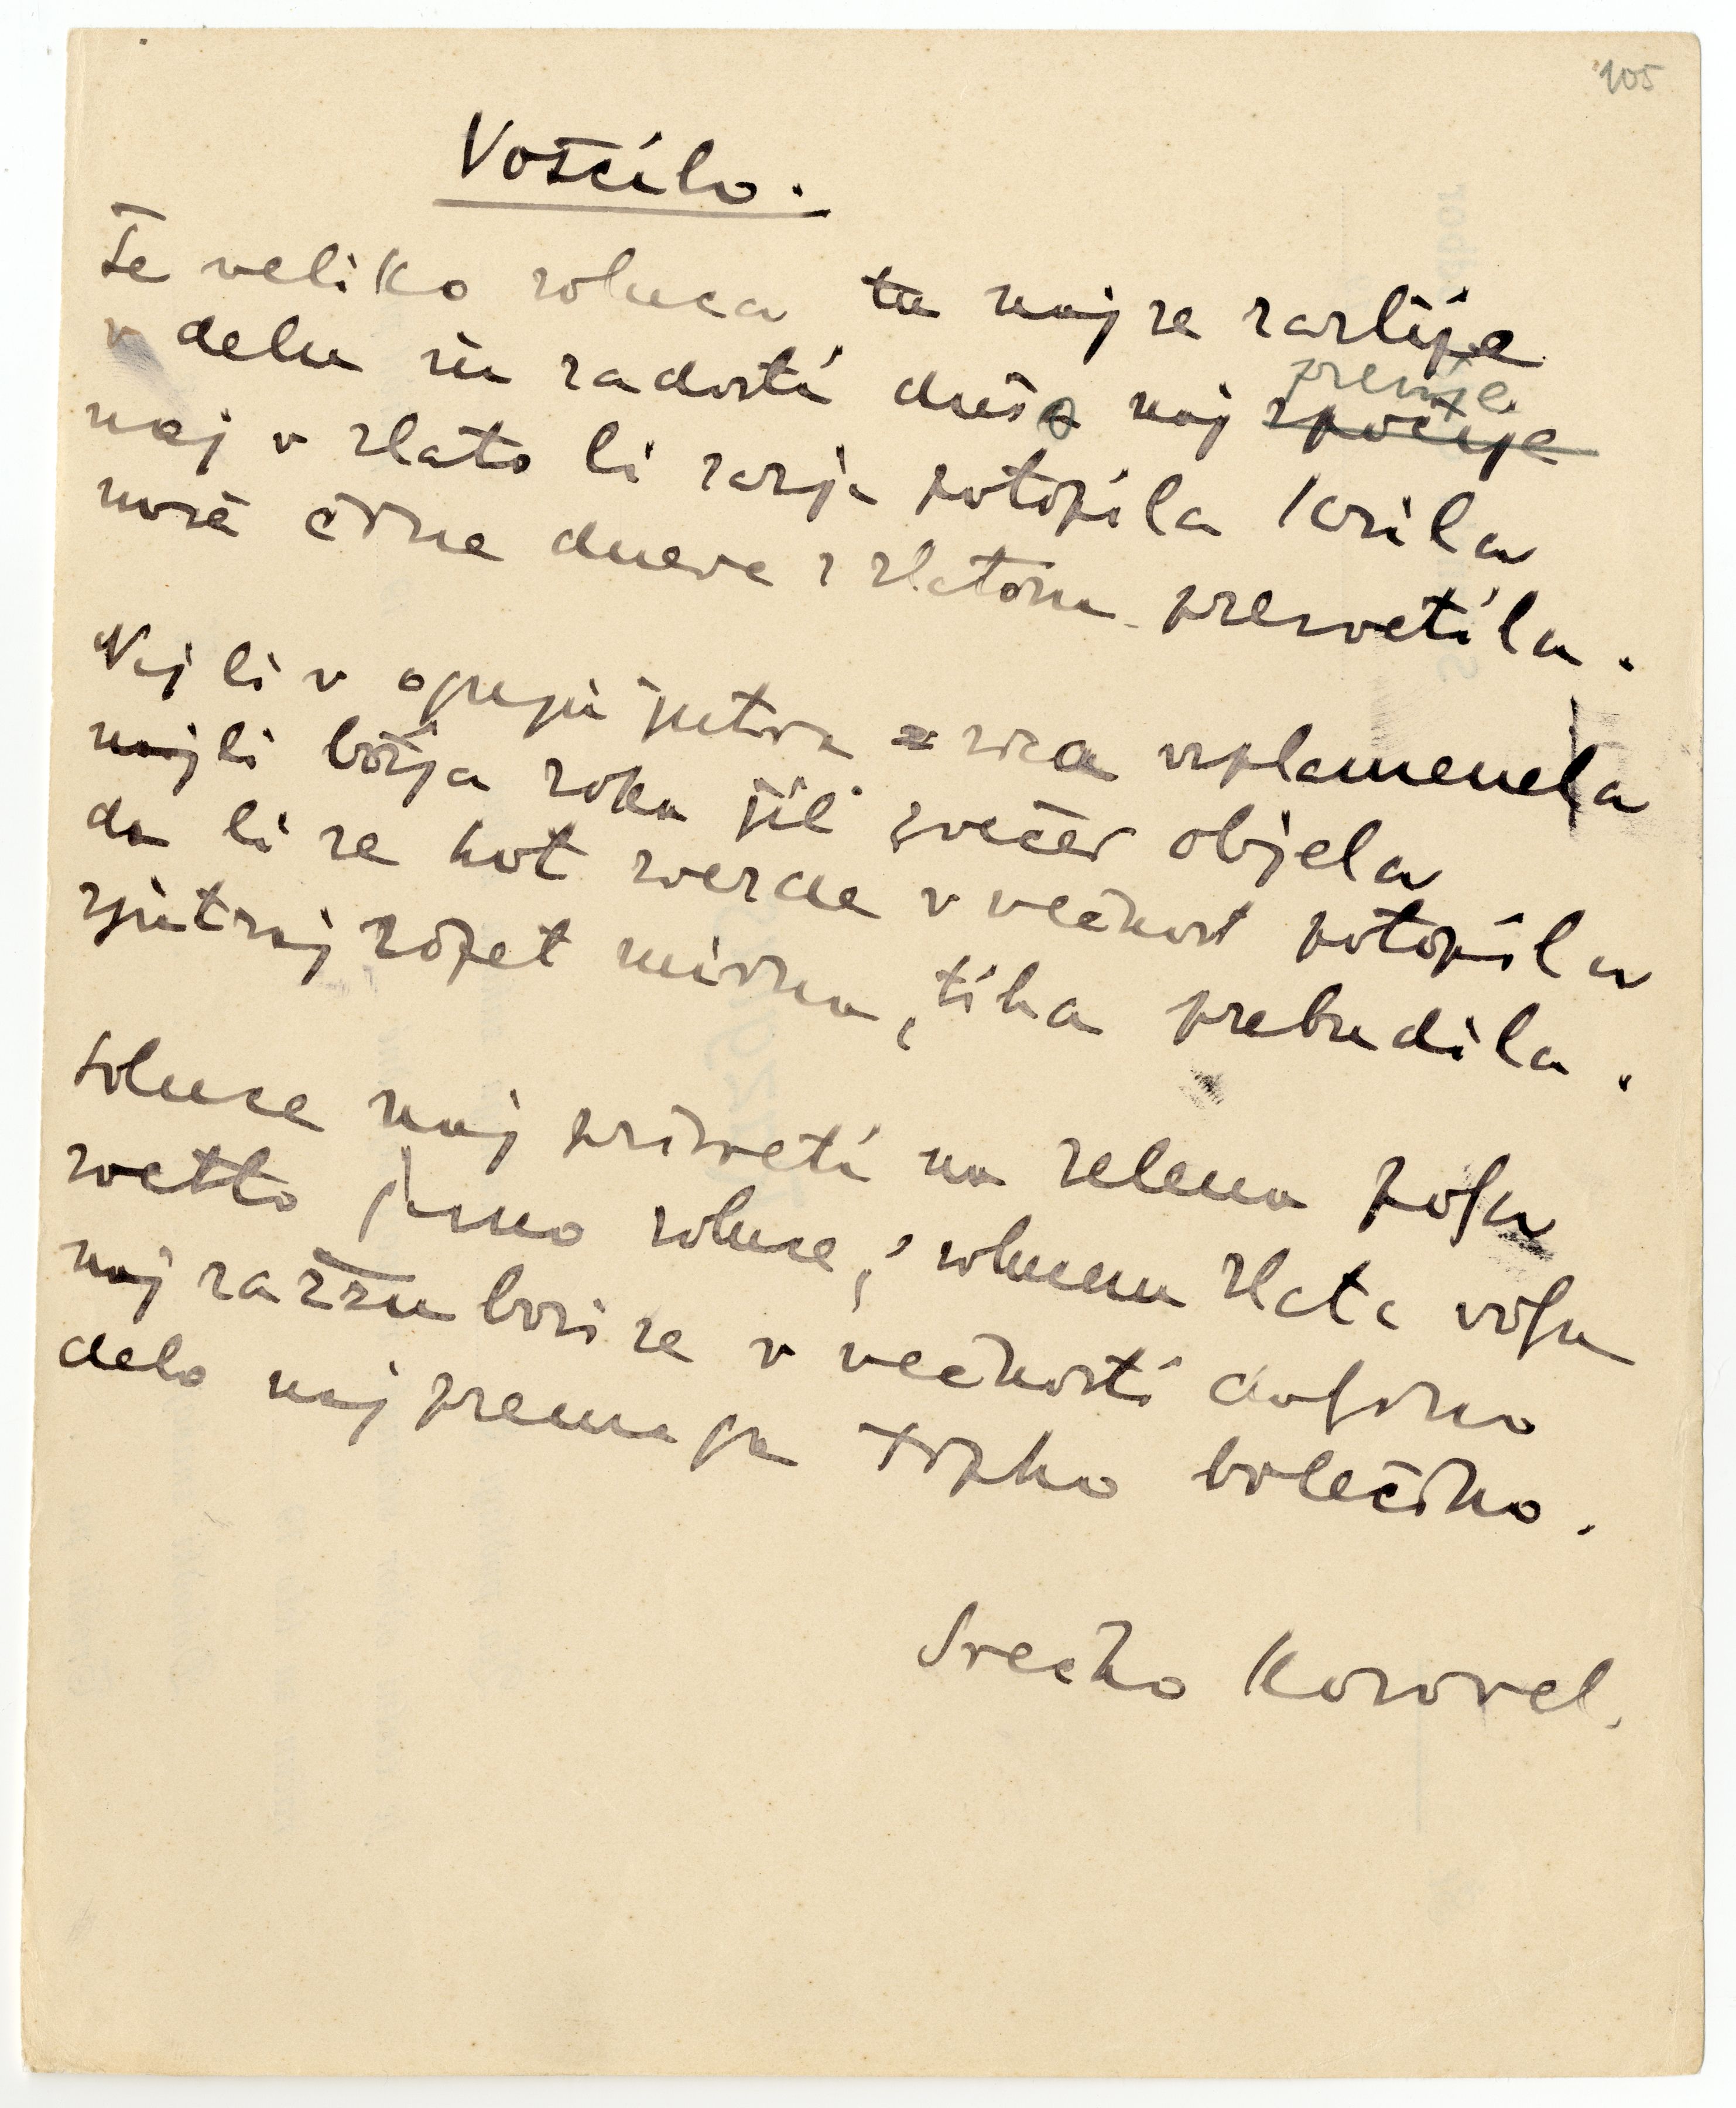 105
Voščilo.
Še veliko solnca tu naj se razlije
v delu in radosti dušo naj spočije
prenije
naj v zlato li zarjo potopila krila
noč črne dneve z zlatom presvetila.
Naj li v ognju jutra srca vsplamenela
naj li božja roka jih zvečer objela
da li se kot zvezde v večnost potopila
zjutraj zopet mirna, tiha prebudila.
Solnce naj prisveti na zelena polja
svetlo jasno solnce, solnčna zlata volja
naj razžubori se v večnosti daljno
delo naj premaga trpko bolečino.
Srečko Kosovel.